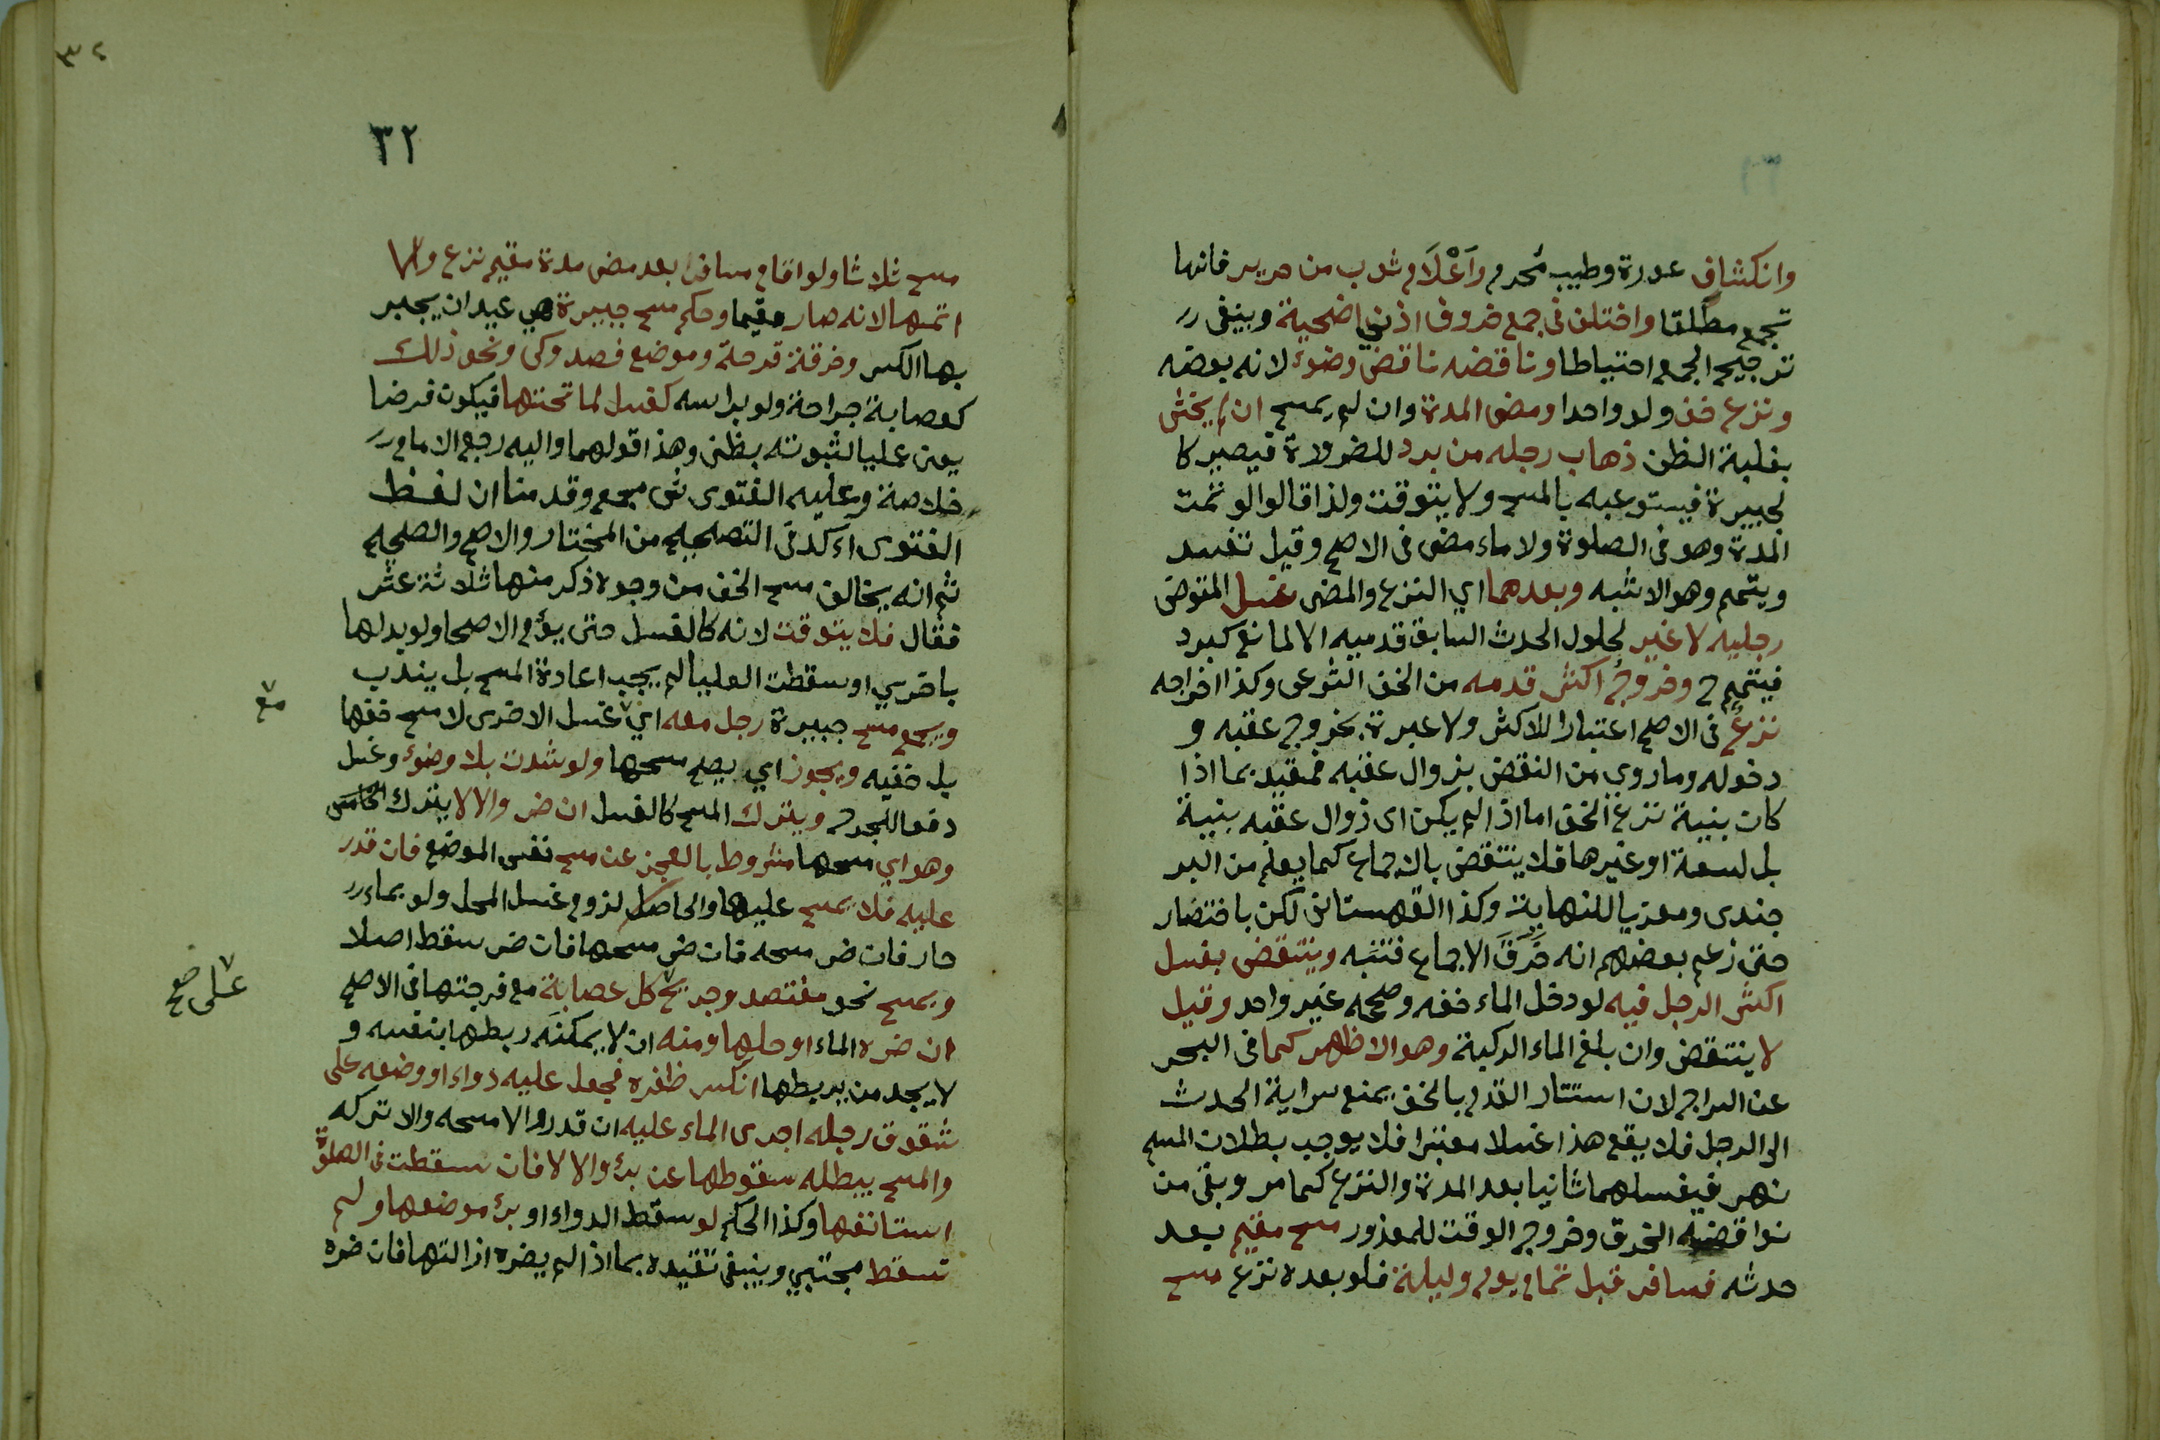 وانكشاف عورة وطيب مُحرم وَأعْلَام ثوب من حرير فانها
تجمع مطلقا واختلف فى جمع خروق اذني اضحية وينبغى
ترجيح الجمع احتياطا وناقضه ناقض وضوء لانه بعضه
ونزع خف ولو واحدا ومضى المدة وان لم يمسح ان لم يخش
بغلبة الظن ذهاب رجله من برد للضرورة فيصير كا
لجبيرة فيستوعبه بالمسح ولا يتوقت ولذا قالوا لو تمت
المدة وهو فى الصلوة ولا ماء مضى فى الاصح وقيل تفسد
ويتيمم وهو الاشبه وبعدهما اي النزع والمضى غسل المتوضى
رجليه لا غير لحلول الحدث السابق قدميه الا لمانع كبرد
فيتيمم ح وخروج اكثر قدمه من الخف الشرعى وكذا اخراجه
نزعٌ فى الاصح اعتبارا للاكثر ولا عبرة بخروج عقبه و
دخوله وما روي من النقض بزوال عقبه فمقيد بما اذا
كان بنية نزع الخف اما اذا لم يكن اى زوال عقبه بنية
بل لسعة او غيرها فلا ينتقض بالاجماع كما يعلم من البر
جندى ومعزيا للنهاية وكذا القهستانى لكن باختصار
حتى زعم بعضهم انه خَرَقَ الاجماع فتنبه وينتقض بغسل
اكثر الرجل فيه لو دخل الماء خفه وصححه غير واحد وقيل
لا ينتقض وان بلغ الماء الركبة وهو الاظهر كما فى البحر
عن السراج لان استتار القدم بالخف يمنع سراية الحدث
الى الرجل فلا يقع هذا غسلا معتبرا فلا يوجب بطلان المسح
نهر فيغسلهما ثانيا بعد المدة والنزع كما مر وبقى من
نواقضه الخرق وخروج الوقت للمعذور مسح مقيم بعد
حدثه فسافر قبل تمام يوم وليلة فلو بعده نزع مسح
٣٢
٣٢
مسح ثلاثا ولو اقام مسافر بعد مضى مدة مقيم نزع والا
اتمها لانه صار مقيما وحكم مسح جبيرة هي عيدان يجبر
بها الكسر وخرقة قرحة وموضع فصد وكى ونحو ذلك
كعصابة جراحة ولو براسه كغسل لما تحتها فيكون فرضا
يعنى عمليا لثبوته بظنى وهذا قولهما واليه رجع الامام
خلاصة وعليه الفتوى ش مجمع وقدمنا ان لفظ
الفتوى آكد فى التصحيح من المختار والاصح والصحيح
ثم انه يخالف مسح الخف من وجوه ذكر منها ثلاثة عشر
فقال فلا يتوقت لانه كالغسل حتى يؤم الاصحا ولو بدلها
باخرى او سقطت العليا لم يجب اعادة المسح بل يندب
ويجمع مسح جبيرة رجل معه اي غسل الاخرى لا مسح خفها
مع
بل خفيه ويجوز اي يصح مسحها ولو شدت بلا وضوء وغسل
دفعا للحرج ويترك المسح كالغسل ان ضر والا لا يترك
وهو اي مسحها مشروط بالعجز عن مسح نفس الموضع فان قدر
عليه فلا يمسح عليها والحاصل لزوم غسل المحل ولو بماء
حار فان ضر مسحه فان ضر مسحها فان ضر سقط اصلا
ويمسح نحو مفتصد وجريح كل عصابة مع فرجتها فى الاصح
على صح
ان ضره الماء او حلها ومنه ان لا يمكنه ربطها بنفسه و
لا يجد من يربطها انكسر ظفره فجعل عليه دواء او وضعه على
شقوق رجله اجرى الماء عليه ان قدر والا مسحه والا تركه
والمسح يبطله سقوطها عن برء والا لا فان سقطت فى الصلوة
استانفها وكذا الحكم لو سقط الدواء او برء موضعها ولم
تسقط مجتبي وينبغى تقييده بما اذا لم يضره ازالتها فان ضره